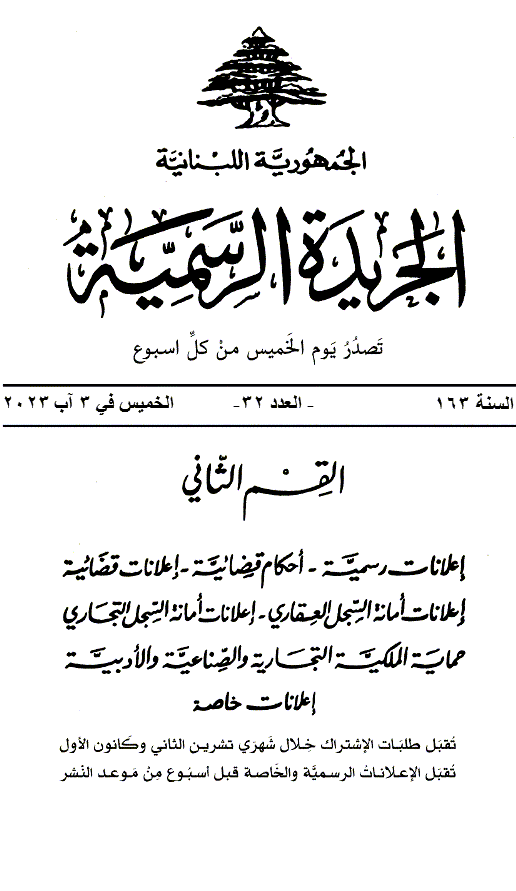 الجُمهُوريَّة اللبْنانيَّة
الجَريدَة الرسَّميَّة
تَصدُرُ يَوم الخَميس منْ كلِّ اسبوع
السنة ١٦٣ - العدد ٣٢- الخميس في ٣ آب ٢٠٢٣
القِسْم الثّاني
إعلانات رسميَّة - أحكام قضائيَّة - إعلانات قضائية
إعلانات أمانة السّجل العقاري - إعلانات أمانة السّجل التجاري
حماية الملكيَّة التجارية والصّناعيَّة والأدبيَّة
إعلانات خاصة
تُقبَل طلبَات الإشتراك خِلال شَهرَي تشرين الثاني وكَانون الأول
تُقبَل الإعلاناتُ الرسميَّة والخَاصة قبل أسبُوع مِنْ مَوعد النَشر